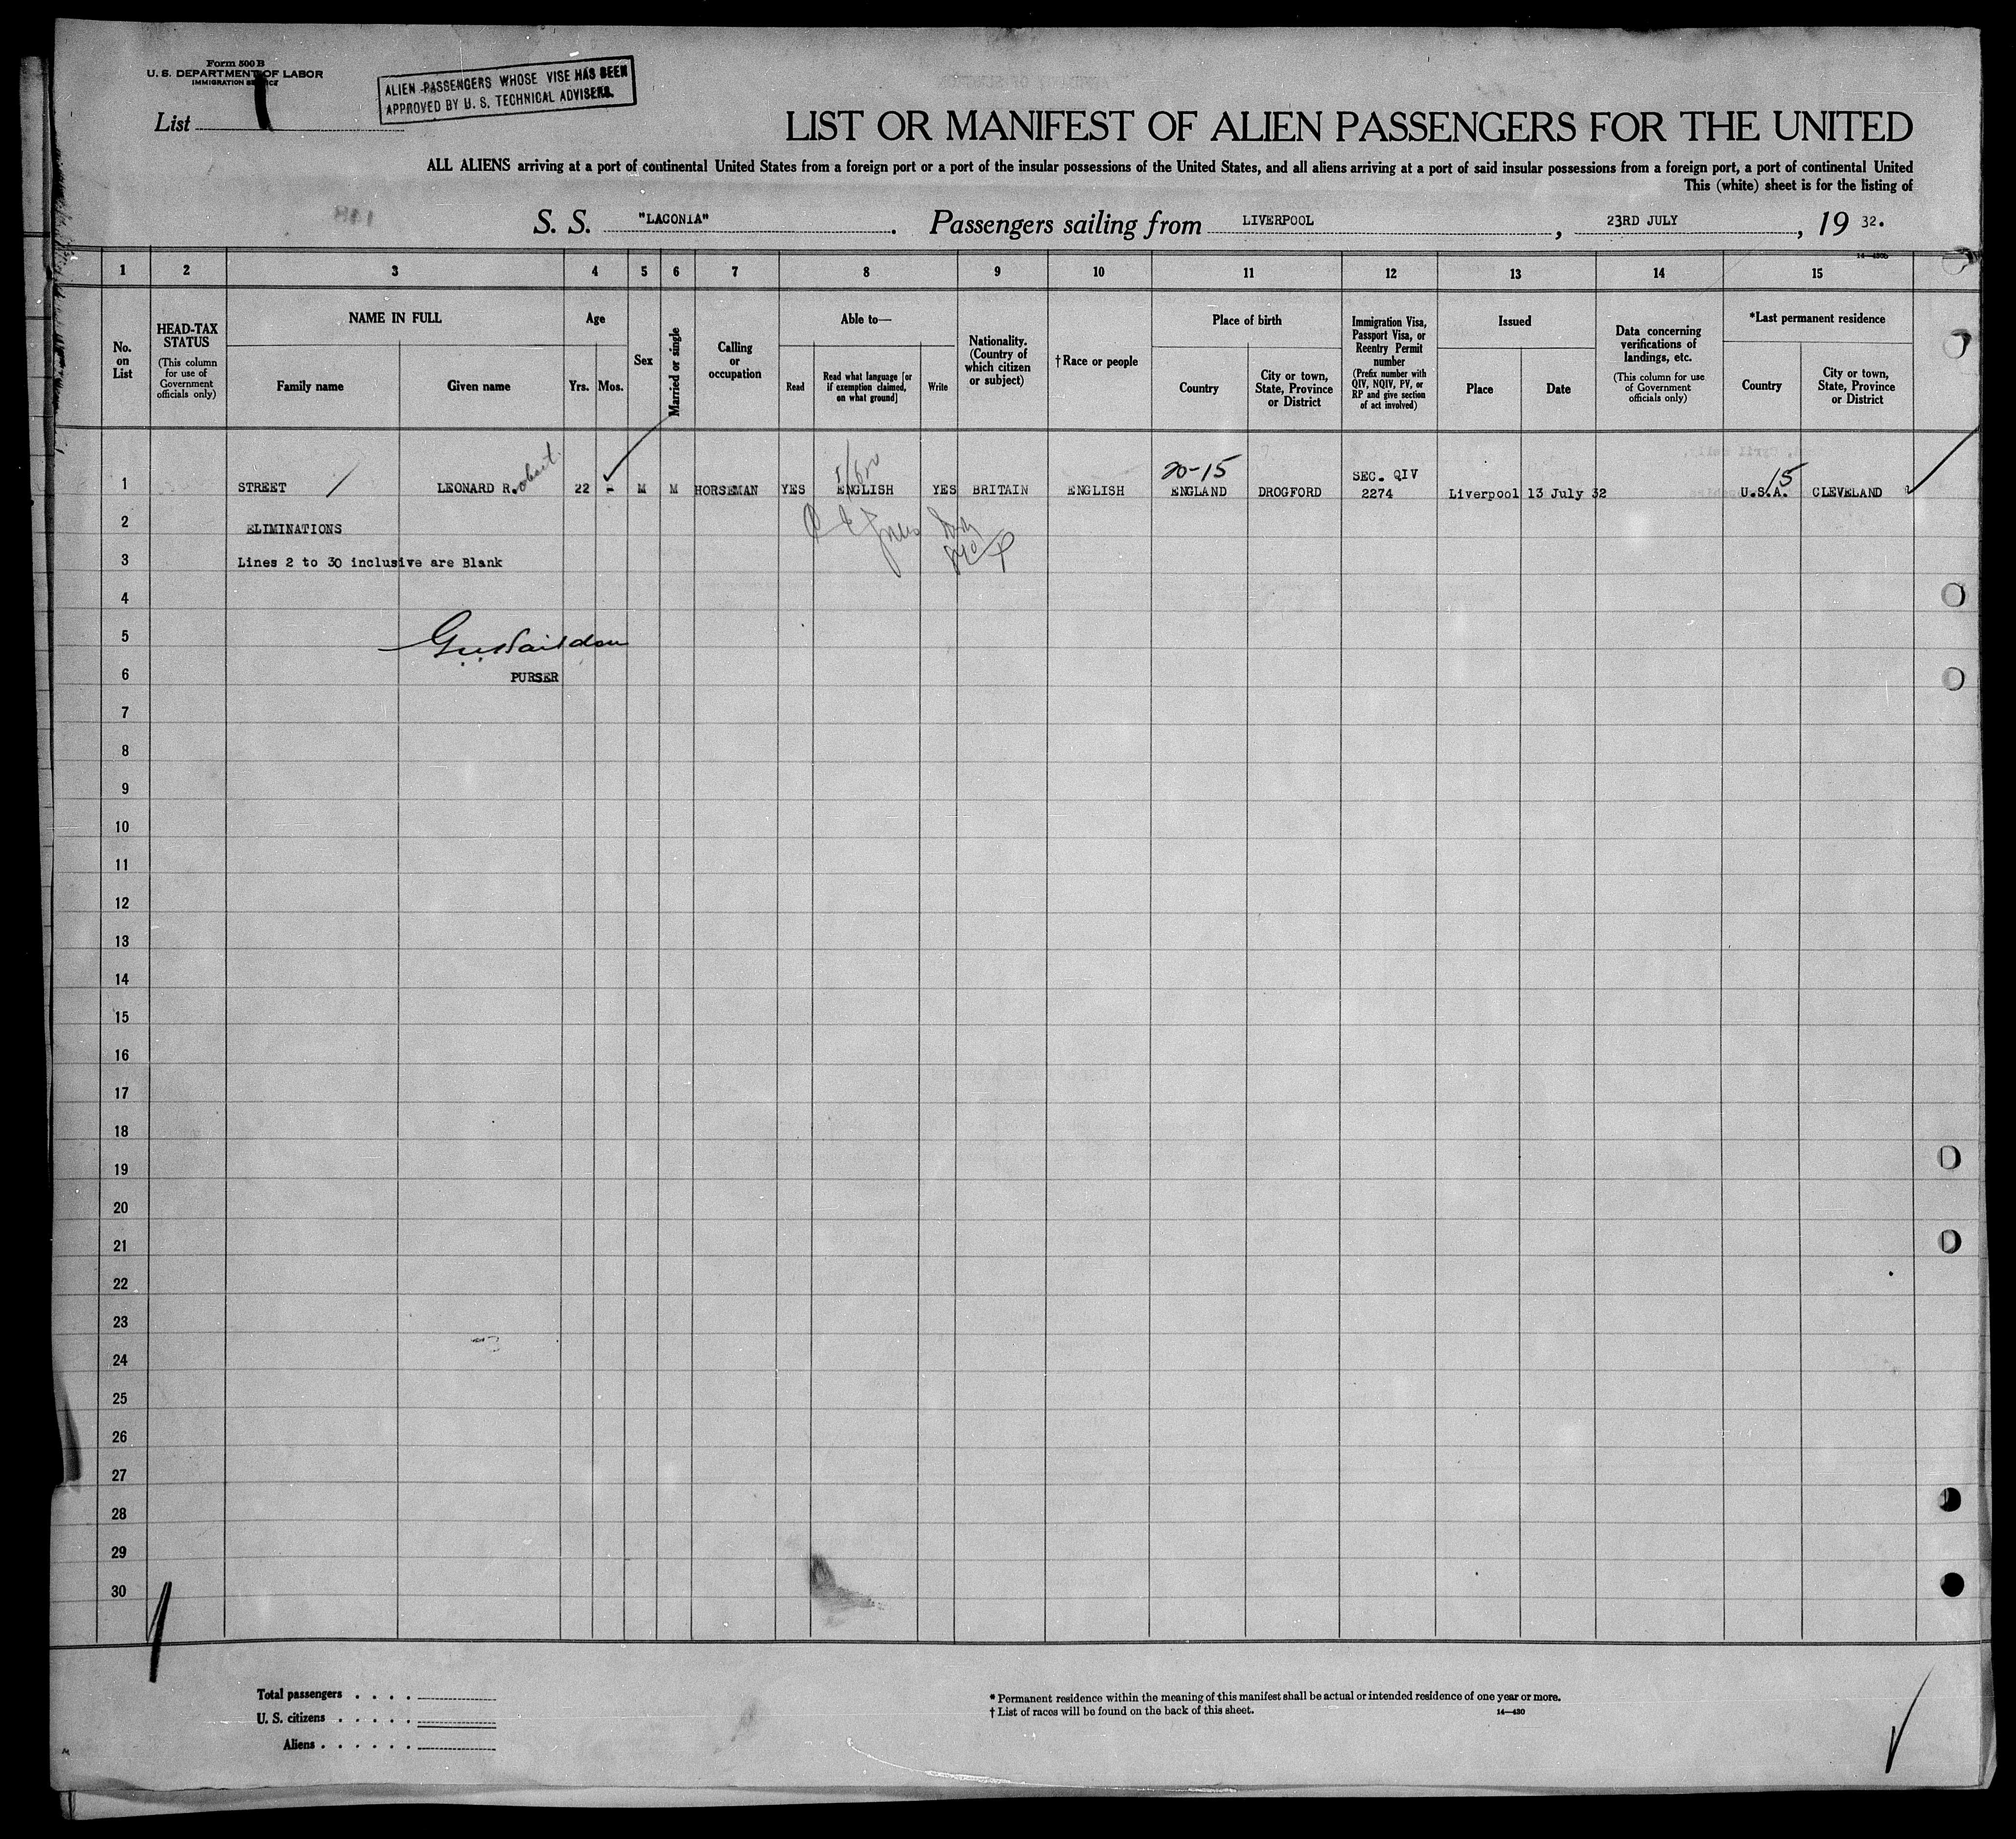 Form 500 B
U. S. DEPARTMENT OF LABOR
IMMIGRATION SERVICE
ALIEN PASSENGERS WHOSE VISE HAS BEEN
APPROVED BY U. S. TECHNICAL ADVISERS.
List 1
LIST OR MANIFEST OF ALIEN PASSENGERS FOR THE UNITED
ALL ALIENS arriving at a port of continental United States from a foreign port or a port of the insular possessions of the United States, and all aliens arriving at a port of said insular possessions from a foreign port, a port of continental United
This (white) sheet is for the listing of
S. S. "LACONIA". Passengers sailing from LIVERPOOL, 23RD JULY, 19 32.
14—430b
1 2 3 4 5 6 7 8 9 10 11 12 13 14 15
No. on List
HEAD-TAX STATUS
(This column for use of Government officials only)
NAME IN FULL
Family name Given name
Age
Yrs. Mos.
Sex
Married or single
Calling or occupation
Able to—
Read
Read what language [or if exemption claimed, on what ground]
Write
Nationality. (Country of which citizen or subject)
† Race or people
Place of birth
Country
City or town, State, Province or District
Immigration Visa, Passport Visa, or Reentry Permit number
(Prefix number with QIV, NQIV, PV, or RP and give section of act involved)
Issued
Place Date
Data concerning verifications of landings, etc.
(This column for use of Government officials only)
*Last permanent residence
Country
City or town, State, Province or District
20-15 SEC. QIV 15
1 STREET LEONARD R.obert 22 - M M HORSEMAN YES ENGLISH YES BRITAIN ENGLISH ENGLAND DROGFORD 2274 Liverpool 13 July 32 U.S.A. CLEVELAND
2 ELIMINATIONS
3 Lines 2 to 30 inclusive are Blank
4
5
6 PURSER
7
8
9
10
11
12
13
14
15
16
17
18
19
20
21
22
23
24
25
26
27
28
29
30
Total passengers . . . .
U. S. citizens . . . . .
Aliens . . . . . .
* Permanent residence within the meaning of this manifest shall be actual or intended residence of one year or more.
† List of races will be found on the back of this sheet.
14—430